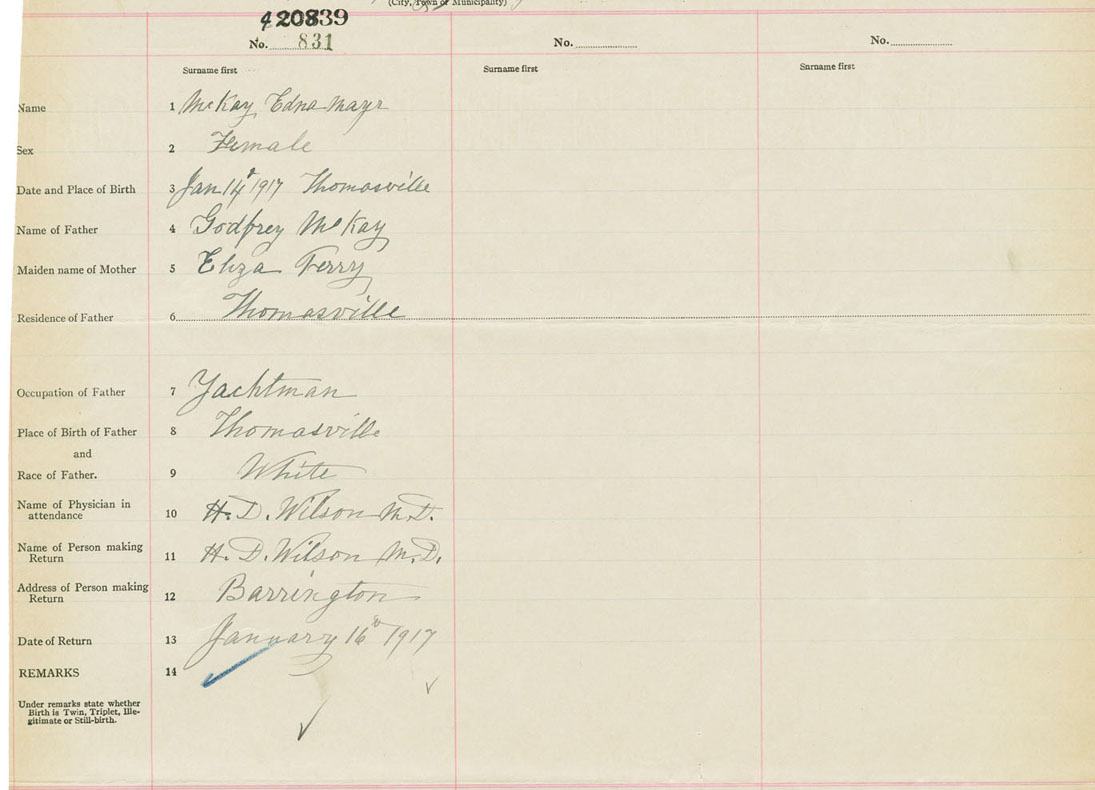 (City, Town or Municipality)
420839
No. 831
No.
No.
Surname first
Surname first
Surname first
Name 1 McKay, Edna
Sex 2 Female
Date and Place of Birth 3 Jan 14th 1917 Thomasville
Name of Father 4 Godfrey McKay
Maiden name of Mother 5 Eliza Ferry
Residence of Father 6 Thomasville
Occupation of Father 7 Yachtman
Place of Birth of Father 8 Thomasville
and
Race of Father. 9 White
Name of Physician in
attendance 10 H. D. Wilson M.D.
Name of Person making
Return 11 H. D. Wilson M.D.
Address of Person making
Return 12 Barrington
Date of Return 13 January 16th 1917
REMARKS 14
Under remarks state whether
Birth is Twin, Triplet, Ille-
gitimate or Still-birth.